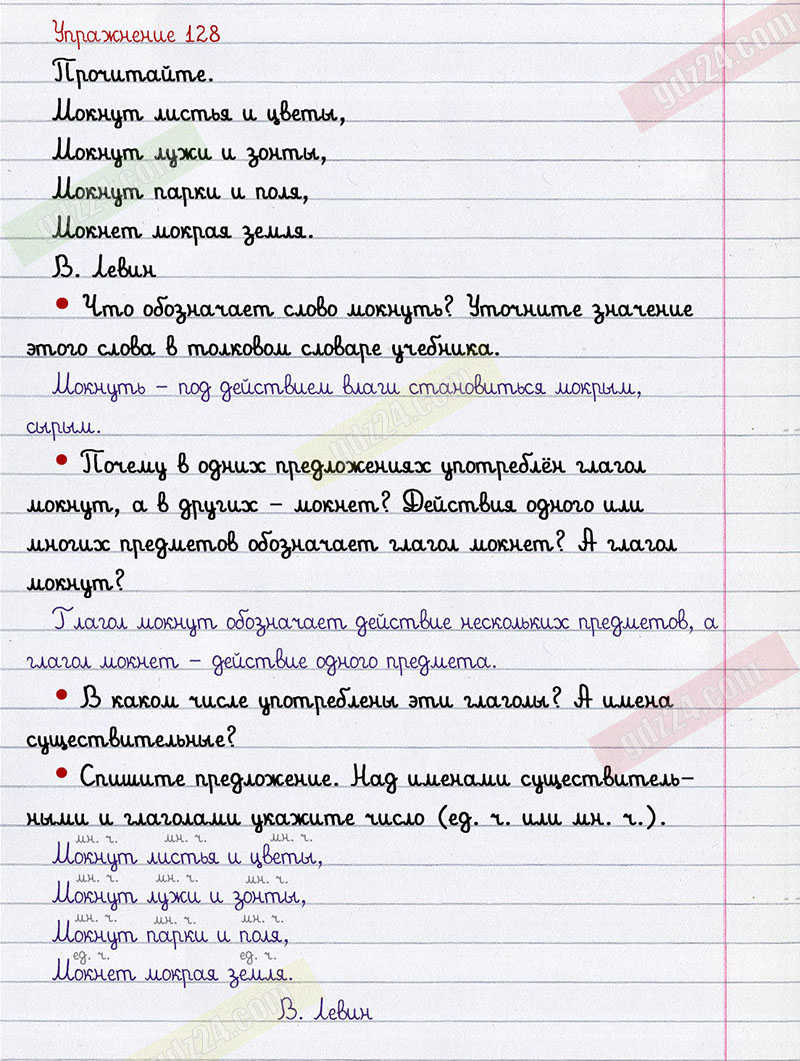 Упражнение 128
Прочитайте.
Мокнут листья и цветы,
Мокнут лужи и зонты,
Мокнут парки и поля,
Мокнет мокрая земля.
В. Левин
• Что обозначает слово мокнуть? Уточните значение
этого слова в толковом словаре учебника.
Мокнуть – под действием влаги становиться мокрым,
сырым.
• Почему в одних предложениях употреблён глагол
мокнут, а в других – мокнет? Действия одного или
многих предметов обозначает глагол мокнет? А глагол
мокнут?
Глагол мокнут обозначает действие нескольких предметов, а
глагол мокнет – действие одного предмета.
• В каком числе употреблены эти глаголы? А имена
существительные?
• Спишите предложение. Над именами существитель-
ными и глаголами укажите число (ед. ч. или мн. ч.).
мн. ч. мн. ч. мн. ч.
Мокнут листья и цветы,
мн. ч. мн. ч. мн. ч.
Мокнут лужи и зонты,
мн. ч. мн. ч. мн. ч.
Мокнут парки и поля,
ед. ч. ед. ч.
Мокнет мокрая земля.
В. Левин
gdz24.com
gdz24.com
gdz24.com
gdz24.com
gdz24.com